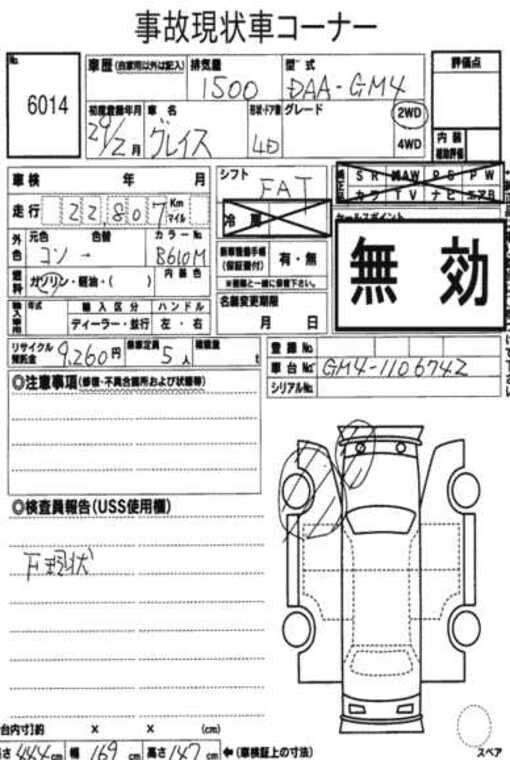 事故現状車コーナー
No.
6014
車歴 (自家用以外は記入)
排気量
1500
型式
DAA-GM4
評価点
初度登録年月
29/2月
車名
グレイス
形状・ドア数
4D
グレード
2WD
4WD
内装
補助評価
車検 年 月
走行 22,807 Km
マイル
シフト
FAT
冷房
SR 純AW PS PW
カワ TV ナビ エアB
セールスポイント
無効
外色
元色 色替
コン →
カラーNo.
B610M
燃料
ガソリン・軽油・( )
内装色
新車整備手帳
(保証書付)
有・無
※書類と一緒に保管下さい。
名義変更期限
月 日
輸入車用
年式
輸入区分
ディーラー・並行
ハンドル
左・右
リサイクル
預託金
9,260円
乗車定員
5人
積載量
t
登録No.
車台No.
GM4-1106742
シリアルNo.
◎注意事項(修復・不具合箇所および状態等)
◎検査員報告(USS使用欄)
下現状
台内寸)約 × × (cm)
長さ 444cm 幅 169cm 高さ 147cm ←(車検証上の寸法)
スペア